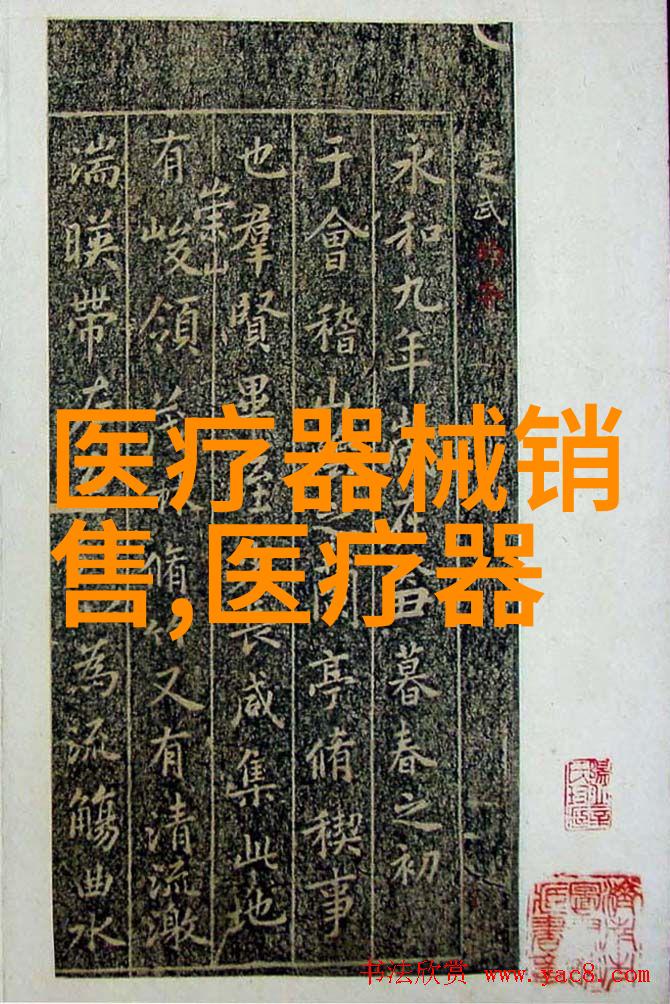 定武
永和九年歲在丑暮春之初
于會稽山之蘭亭脩稧事
也羣賢畢至長咸集此地
有崇山峻領茂林脩竹又有清流激
湍暎帶左為流觴曲水
医疗器械销
售,医疗器
书法欣赏 www.yac8.com